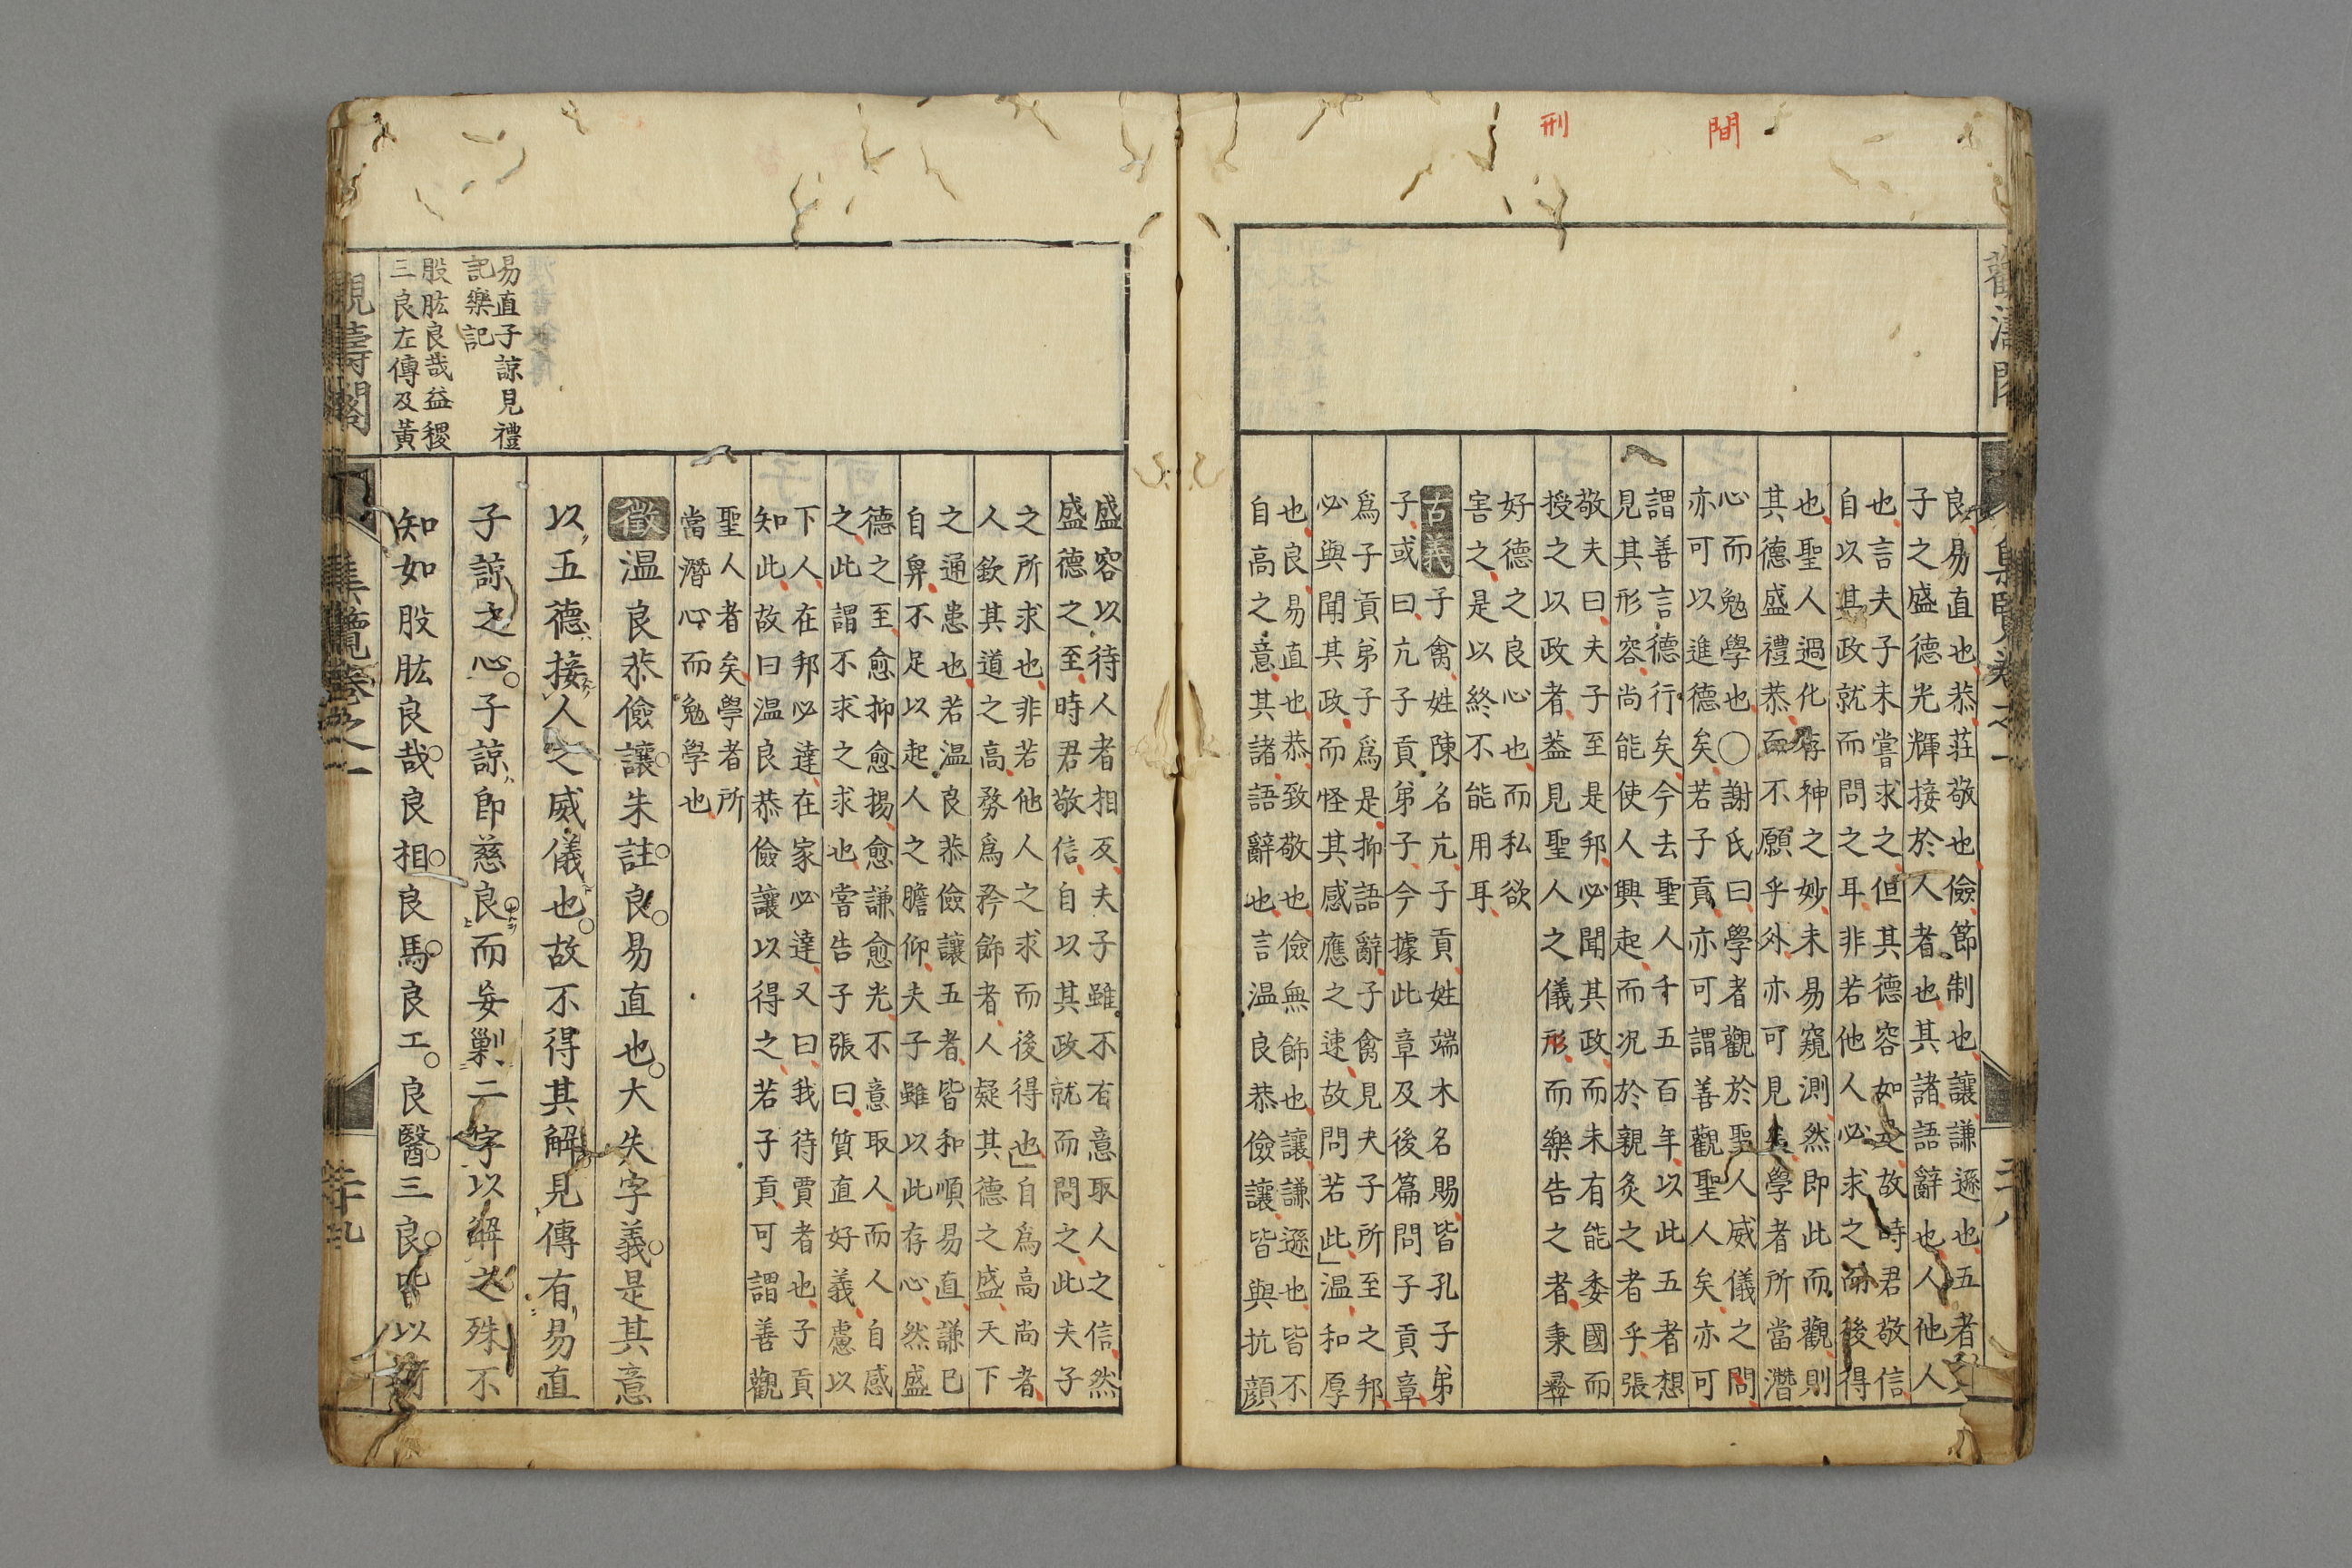 間
刑
觀濤閣
集覽卷之一
二十八
良易直也恭莊敬也儉節制也讓謙遜也五者夫
子之盛德光輝接於人者也其諸語辭也人他人
也言夫子未嘗求之但其德容如是故時君敬信
自以其政就而問之耳非若他人必求之而後得
也聖人過化存神之妙未易窺測然即此而觀則
其德盛禮恭而不願乎外亦可見矣學者所當潛
心而勉學也○謝氏曰學者觀於聖人威儀之問
亦可以進德矣若子貢亦可謂善觀聖人矣亦可
謂善言德行矣今去聖人千五百年以此五者想
見其形容尚能使人興起而况於親炙之者乎張
敬夫曰夫子至是邦必聞其政而未有能委國而
授之以政者葢見聖人之儀形而樂告之者秉彞
好德之良心也而私欲
害之是以終不能用耳
古義子禽姓陳名亢子貢姓端木名賜皆孔子弟
子或曰亢子貢弟子今據此章及後篇問子貢章
爲子貢弟子爲是抑語辭子禽見夫子所至之邦
必與聞其政而怪其感應之速故問若此」温和厚
也良易直也恭致敬也儉無飾也讓謙遜也皆不
自高之意其諸語辭也言温良恭儉讓皆與抗顔
盛容以待人者相反夫子雖不有意取人之信然
盛德之至時君敬信自以其政就而問之此夫子
之所求也非若他人之求而後得也」自爲高尚者
人欽其道之高務爲矜飾者人疑其德之盛天下
之通患也若温良恭儉讓五者皆和順易直謙已
自卑不足以起人之瞻仰夫子雖以此存心然盛
德之至愈抑愈揚愈謙愈光不意取人而人自感
之此謂不求之求也甞告子張曰質直好義慮以
下人在邦必達在家必達又曰我待賈者也子貢
知此故曰温良恭儉讓以得之若子貢可謂善觀
聖人者矣學者所
當潛心而勉學也
徵温良恭儉讓朱註良易直也大失字義是其意
以五德接人之威儀也故不得其解見傳有易直
子諒之心子諒即慈良而妄剿二字以解之殊不
知如股肱良哉良相良馬良工良醫三良皆以材
易直子諒見禮
記樂記
股肱良哉益稷
三良左傳及黃
觀濤閣
集覽卷之一
二十九